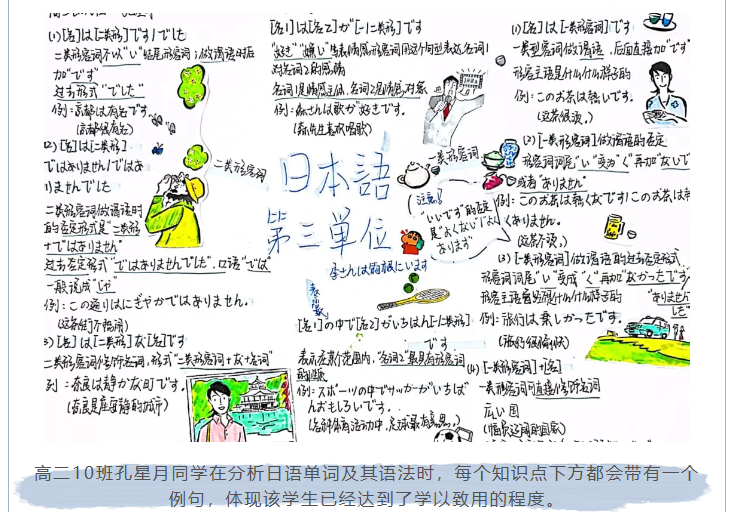 (1)[名]は[二类形]です/でした
二类形容词不以"い"结尾形容词;做谓语时后
加"です"
过去形式"でした"
例:京都は有名です。
(京都很有名)
(2)[名]は[二类形]
ではありません/ではあ
りませんでした
二类形容词做谓语时
的否定形式是"二类形
+ではありません"
过去否定形式"ではありませんでした",口语"では"
一般说成"じゃ"
例:この通りはにぎやかではありません。
(这条街不热闹)
3)[名]は[二类形]な[名]です
二类形容词修饰名词,形式"二类形容词+な+名词"
例:奈良は静かな町です。
(奈良是座安静的城市)
二类形容词
[名1]は[名2]が[一/二类形]です
"好き""嫌い"等表情感形容词用这个句型表达名词1
对名词2的感情
名词1是情感主体,名词2是情感对象
例:森さんは歌が好きです。
(森先生喜欢唱歌)
日本語
第三単位
李さんは箱根にいます
[名1]の中で[名2]がいちばん[一/二类形]
です
表示在某个范围内,名词2最具有形容词
例:スポーツの中でサッカーがいちば
んおもしろいです。
一类形容词
注意!
"いいです"的否定
是"よくない"/"よく
ありません。
(1)[名]は[一类形]です
一类型容词做谓语,后面直接加"です"
形容主语是什么什么样子的
例:このお茶は熱いです。
(这茶很烫。)
(2)[一类形容词]做谓语的否定
形容词词尾"い"变为"く"再加"ないで
或者"ありません"
例:このお茶は熱くないです/このお茶は
くありません。
(这茶不烫。)
(3)[一类形容词]做谓语的过去否定形式
形容词词尾"い"变成"く"再加"なかったです/
"ありません
した"
例:旅行は楽しかったです。
(旅行很愉快)
(4)[一类形容词]+[名]
一类形容词可直接修饰名词
広い国
(幅员辽阔的国家)
高二10班孔星月同学在分析日语单词及其语法时，每个知识点下方都会带有一个
例句，体现该学生已经达到了学以致用的程度。